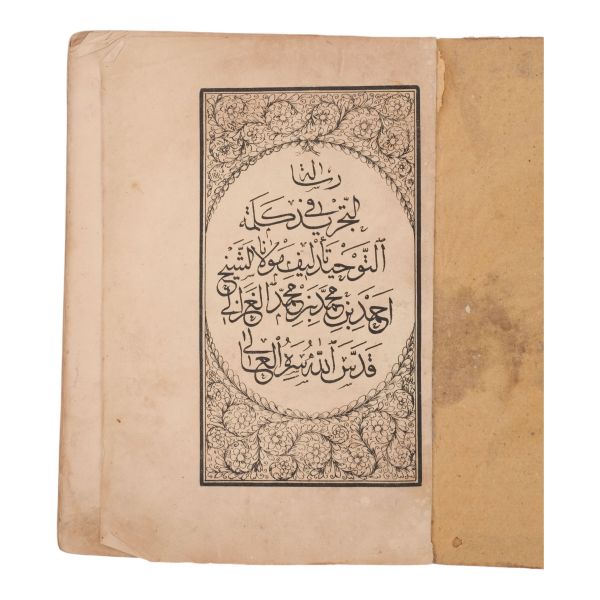 رسالة
التجريد في كلمة
التوحيد تأليف مولانا الشيخ
احمد بن محمد بن محمد الغزالي
قدس الله سره العالي